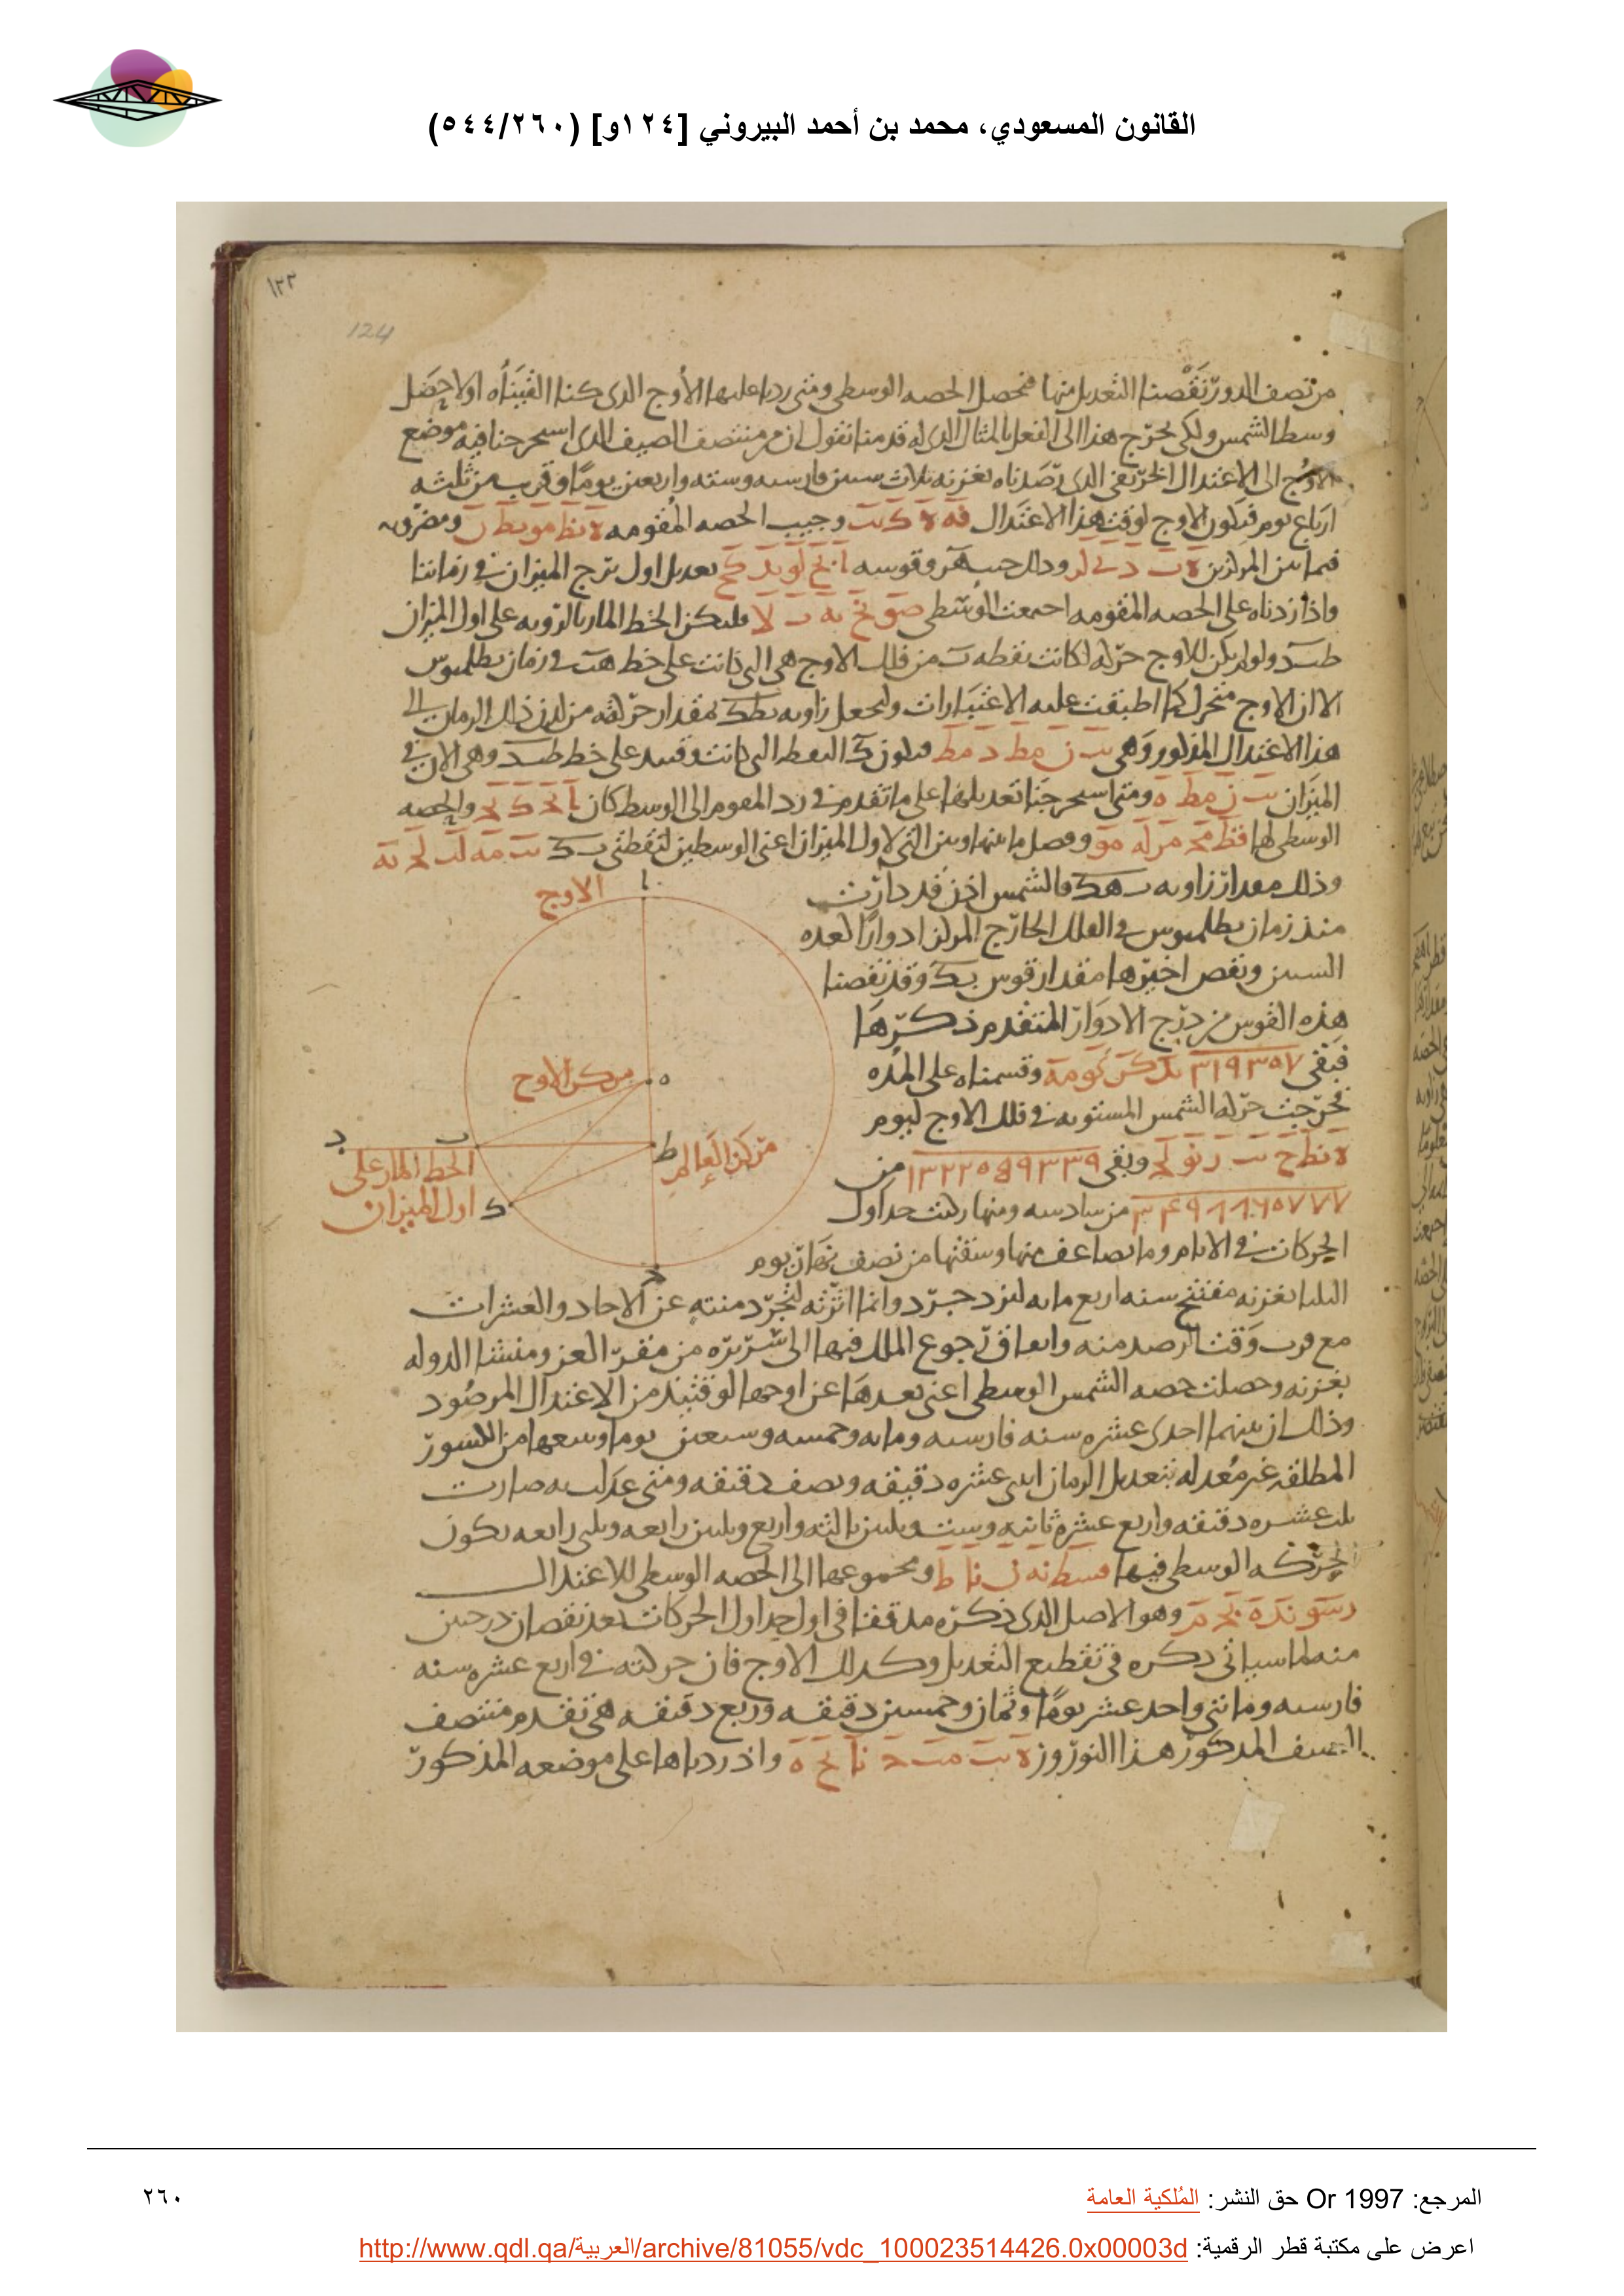 القانون المسعودي، محمد بن أحمد البيروني [١٢٤و] (٥٤٤/٢٦٠)
١٢٣
124
من نصف الدور نقصنا التعديل منها فتحصل الحصه الوسطى ومتى زدنا عليها الأوج الذى كنا الفيناه اولا حصل
وسط الشمس ولكى يخرج هذا الى الفعل بالمثال الذى له قدمنا نقول ان من منتصف الصيف الذى استخرجنا فيه موضع
الاوج الى الاعتدال الخريفى الذى رصدناه بغزنه ثلاث سنين فارسيه وسته واربعين يوما وقريب من ثلثه
ارباع يوم فيكون الاوج لوقت هذا الاعتدال وجيب الحصه المقومه ومضروبه
فيما بين المركزين وذلك جيب وقوسه تعديل اول برج الميزان فى زماننا
واذا زدناه على الحصه المقومه اجتمعت الوسطى فليكن الخط المار بالرويه على اول الميزان
ولو لم يكن للاوج حركه لكانت نقطه ب من فلك الاوج هى التى كانت على خط فى زمان بطلميوس
الا ان الاوج متحرك كما اطبقت عليه الاعتبارات ولنجعل زاويه بمقدار حركته من لدن ذلك الزمان الى
هذا الاعتدال المذكور وهى فيكون ك النقطه التى كانت وقتيذ على خط وهى الان فى
الميزان ومتى استخرجنا تعديلها على ما تقدم فى رد المقوم الى الوسط كان والحصه
الوسطى لها وفضل ما بينها وبين التى لاول الميزان اعنى الوسطين لنقطتى ب ك
وذلك مقدار زاويه ب ه ك فالشمس اذن قد دارت
منذ زمان بطلميوس فى الفلك الخارج المركز ادوارا لعده
السنين ونقص اخيرها مقدار قوس ب ك وقد نقصنا
هذه القوس من درج الادوار المتقدم ذكرها
فبقى ٣١٩٣٥٧ وقسمناه على المده
فخرجت حركه الشمس المستويه فى فلك الاوج ليوم
وبقى من
من سادسه ومنها ركبت جداول
الحركات فى الايام وما يضاعف منها وسقتها من نصف نهار يوم
الاوج
ا
مركز الاوج
ه
مركز العالم
ط
ب
د
ك
ج
الخط المار على
اول الميزان
الثلثا بغزنه مفتتح سنه اربع مايه ليزدجرد وانما اثرته لتجرد منته عن الاحاد والعشرات
مع قرب وقت الرصد منه واتفاق رجوع الملك فيها الى سريره من مقر العز ومنشا الدوله
بغزنه وحصلت حصه الشمس الوسطى اعنى بعدها عن اوجها لوقتيذ من الاعتدال المرصود
وذلك ان بينهما احدى عشره سنه فارسيه ومايه وخمسه وسبعين يوما وتتبعها من الكسور
المطلقه غير معدله بتعديل الزمان اثنى عشره دقيقه ونصف دقيقه ومتى عدلت به صارت
ثلث عشره دقيقه واربع عشره ثانيه وست وثلثين ثالثه واربع وثلثين رابعه وثلثى رابعه يكون
الحركه الوسطى فيها ومجموعها الى الحصه الوسطى للاعتدال
وهو الاصل الذى ذكره مدققا فى اول جداول الحركات بعد نقصان درجتين
منه لما سياتى ذكره فى تقطيع التعديل وكذلك الاوج فان حركته فى اربع عشره سنه
فارسيه ومائتى واحد عشر يوما وثمان وخمسين دقيقه وربع دقيقه هى تقدم منتصف
الصيف المذكور هذا النوروز واذ زدناها على موضعه المذكور
المرجع: Or 1997 حق النشر: المُلكية العامة
٢٦٠
اعرض على مكتبة قطر الرقمية: http://www.qdl.qa/العربية/archive/81055/vdc_100023514426.0x00003d